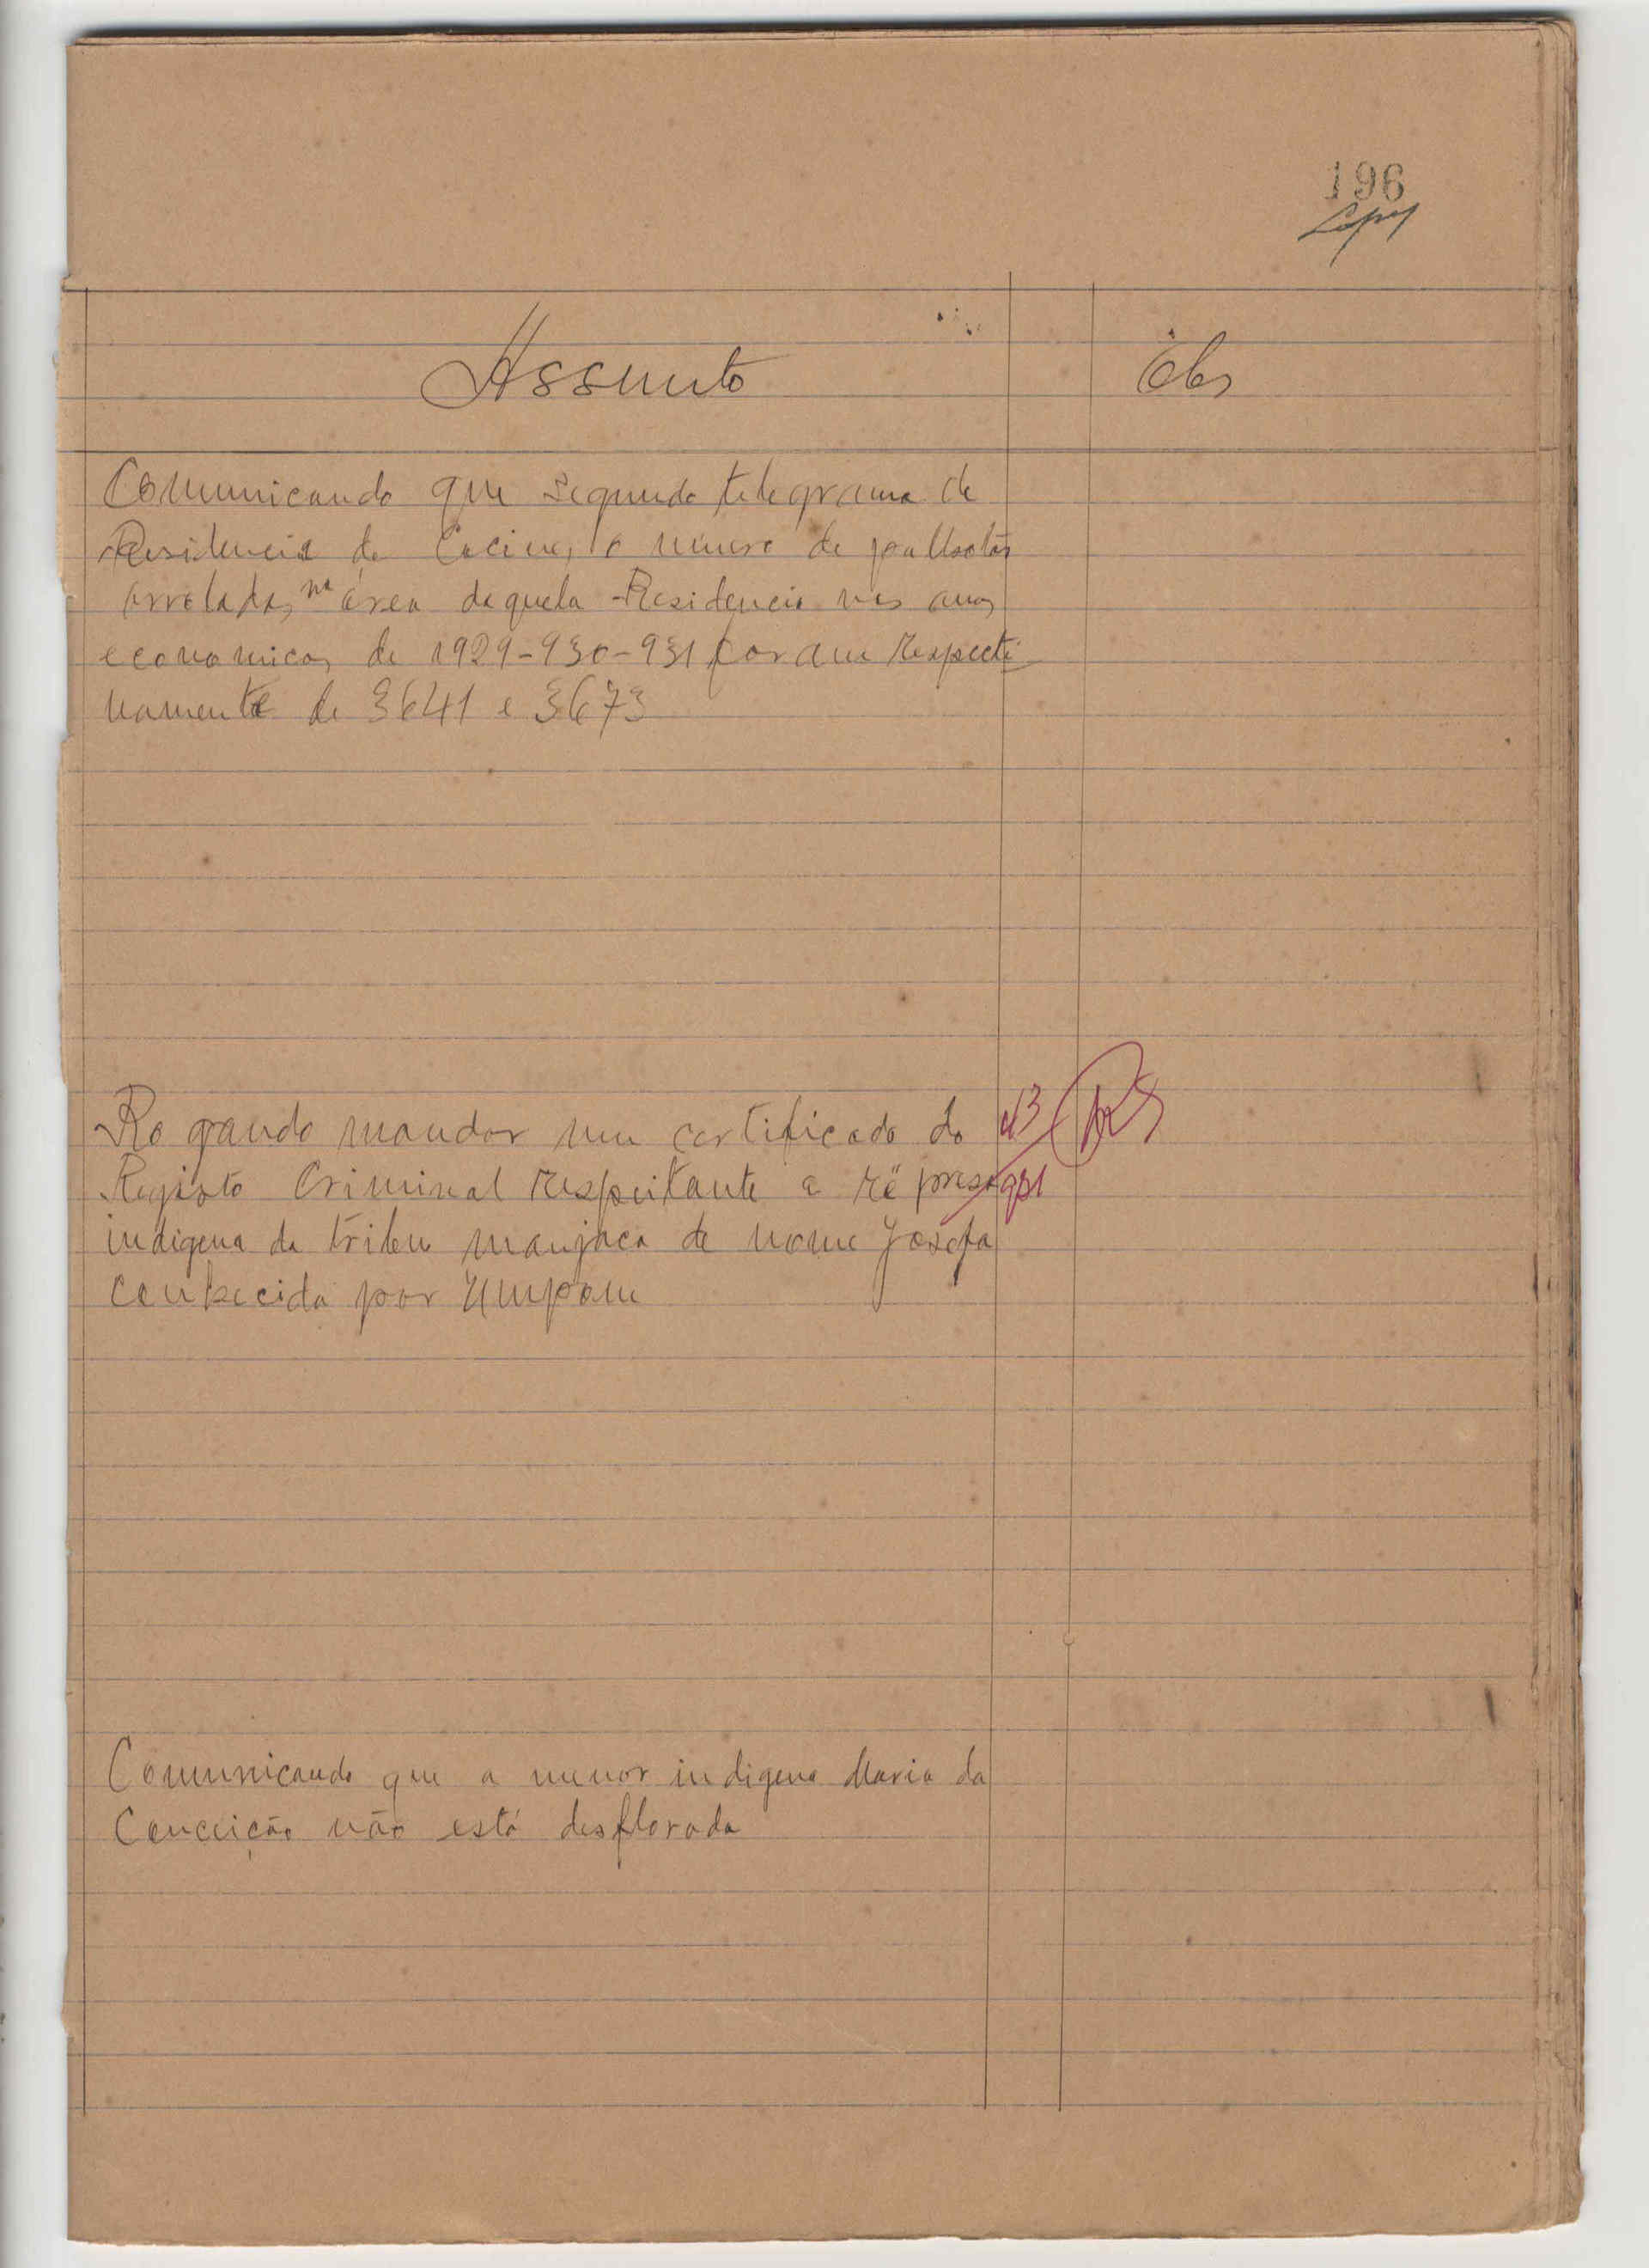 196
Assunto
Obs
Comunicando que segundo telegrama da
Residencia de Cacine, o número de palhotas
arroladas na área daquela Residencia nos anos
economicos de 1929-930-931 foram respecti
vamente de 3641 e 3673
Rogando mandar um certificado do
Registo Criminal respeitante a ré presa
931
indigena da tribu manjaca de nome Josefa
conhecida por Umpom
Comunicando que a menor indigena Maria da
Conceição não está desflorada